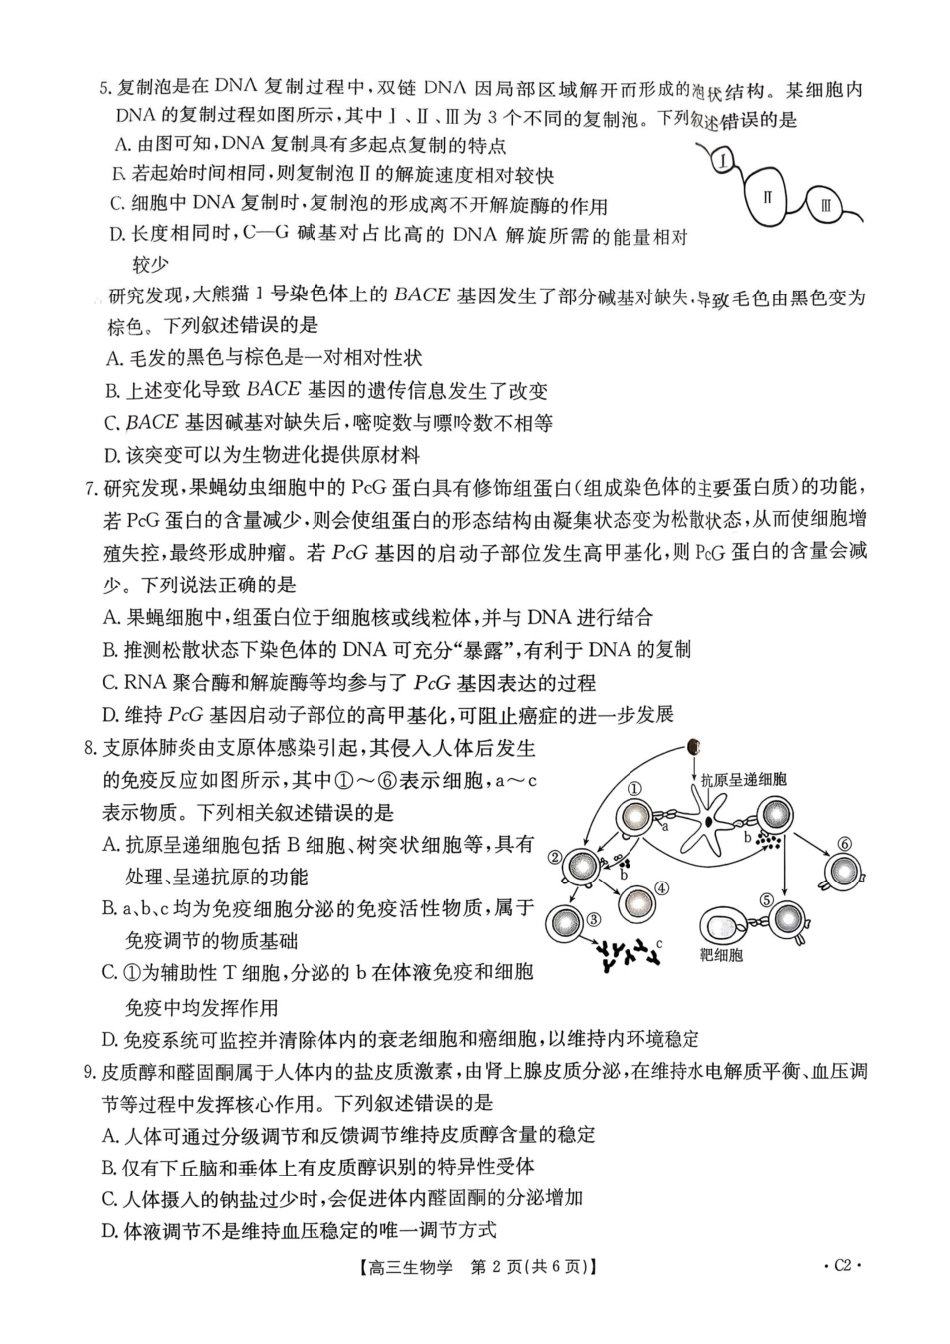 5. 复制泡是在 DNA 复制过程中,双链 DNA 因局部区域解开而形成的泡状结构。某细胞内
DNA 的复制过程如图所示,其中Ⅰ、Ⅱ、Ⅲ为 3 个不同的复制泡。下列叙述错误的是
A. 由图可知,DNA 复制具有多起点复制的特点
B. 若起始时间相同,则复制泡Ⅱ的解旋速度相对较快
C. 细胞中 DNA 复制时,复制泡的形成离不开解旋酶的作用
D. 长度相同时,C—G 碱基对占比高的 DNA 解旋所需的能量相对
较少
Ⅰ
Ⅱ
Ⅲ
研究发现,大熊猫 1 号染色体上的 BACE 基因发生了部分碱基对缺失,导致毛色由黑色变为
棕色。下列叙述错误的是
A. 毛发的黑色与棕色是一对相对性状
B. 上述变化导致 BACE 基因的遗传信息发生了改变
C. BACE 基因碱基对缺失后,嘧啶数与嘌呤数不相等
D. 该突变可以为生物进化提供原材料
7. 研究发现,果蝇幼虫细胞中的 PcG 蛋白具有修饰组蛋白(组成染色体的主要蛋白质)的功能,
若 PcG 蛋白的含量减少,则会使组蛋白的形态结构由凝集状态变为松散状态,从而使细胞增
殖失控,最终形成肿瘤。若 PcG 基因的启动子部位发生高甲基化,则 PcG 蛋白的含量会减
少。下列说法正确的是
A. 果蝇细胞中,组蛋白位于细胞核或线粒体,并与 DNA 进行结合
B. 推测松散状态下染色体的 DNA 可充分“暴露”,有利于 DNA 的复制
C. RNA 聚合酶和解旋酶等均参与了 PcG 基因表达的过程
D. 维持 PcG 基因启动子部位的高甲基化,可阻止癌症的进一步发展
8. 支原体肺炎由支原体感染引起,其侵入人体后发生
的免疫反应如图所示,其中①～⑥表示细胞,a～c
表示物质。下列相关叙述错误的是
A. 抗原呈递细胞包括 B 细胞、树突状细胞等,具有
处理、呈递抗原的功能
B. a、b、c 均为免疫细胞分泌的免疫活性物质,属于
免疫调节的物质基础
C. ①为辅助性 T 细胞,分泌的 b 在体液免疫和细胞
免疫中均发挥作用
D. 免疫系统可监控并清除体内的衰老细胞和癌细胞,以维持内环境稳定
抗原呈递细胞
①
a
b
⑥
②
b
④
⑤
③
c
靶细胞
9. 皮质醇和醛固酮属于人体内的盐皮质激素,由肾上腺皮质分泌,在维持水电解质平衡、血压调
节等过程中发挥核心作用。下列叙述错误的是
A. 人体可通过分级调节和反馈调节维持皮质醇含量的稳定
B. 仅有下丘脑和垂体上有皮质醇识别的特异性受体
C. 人体摄入的钠盐过少时,会促进体内醛固酮的分泌增加
D. 体液调节不是维持血压稳定的唯一调节方式
【高三生物学 第 2 页(共 6 页)】
·C2·